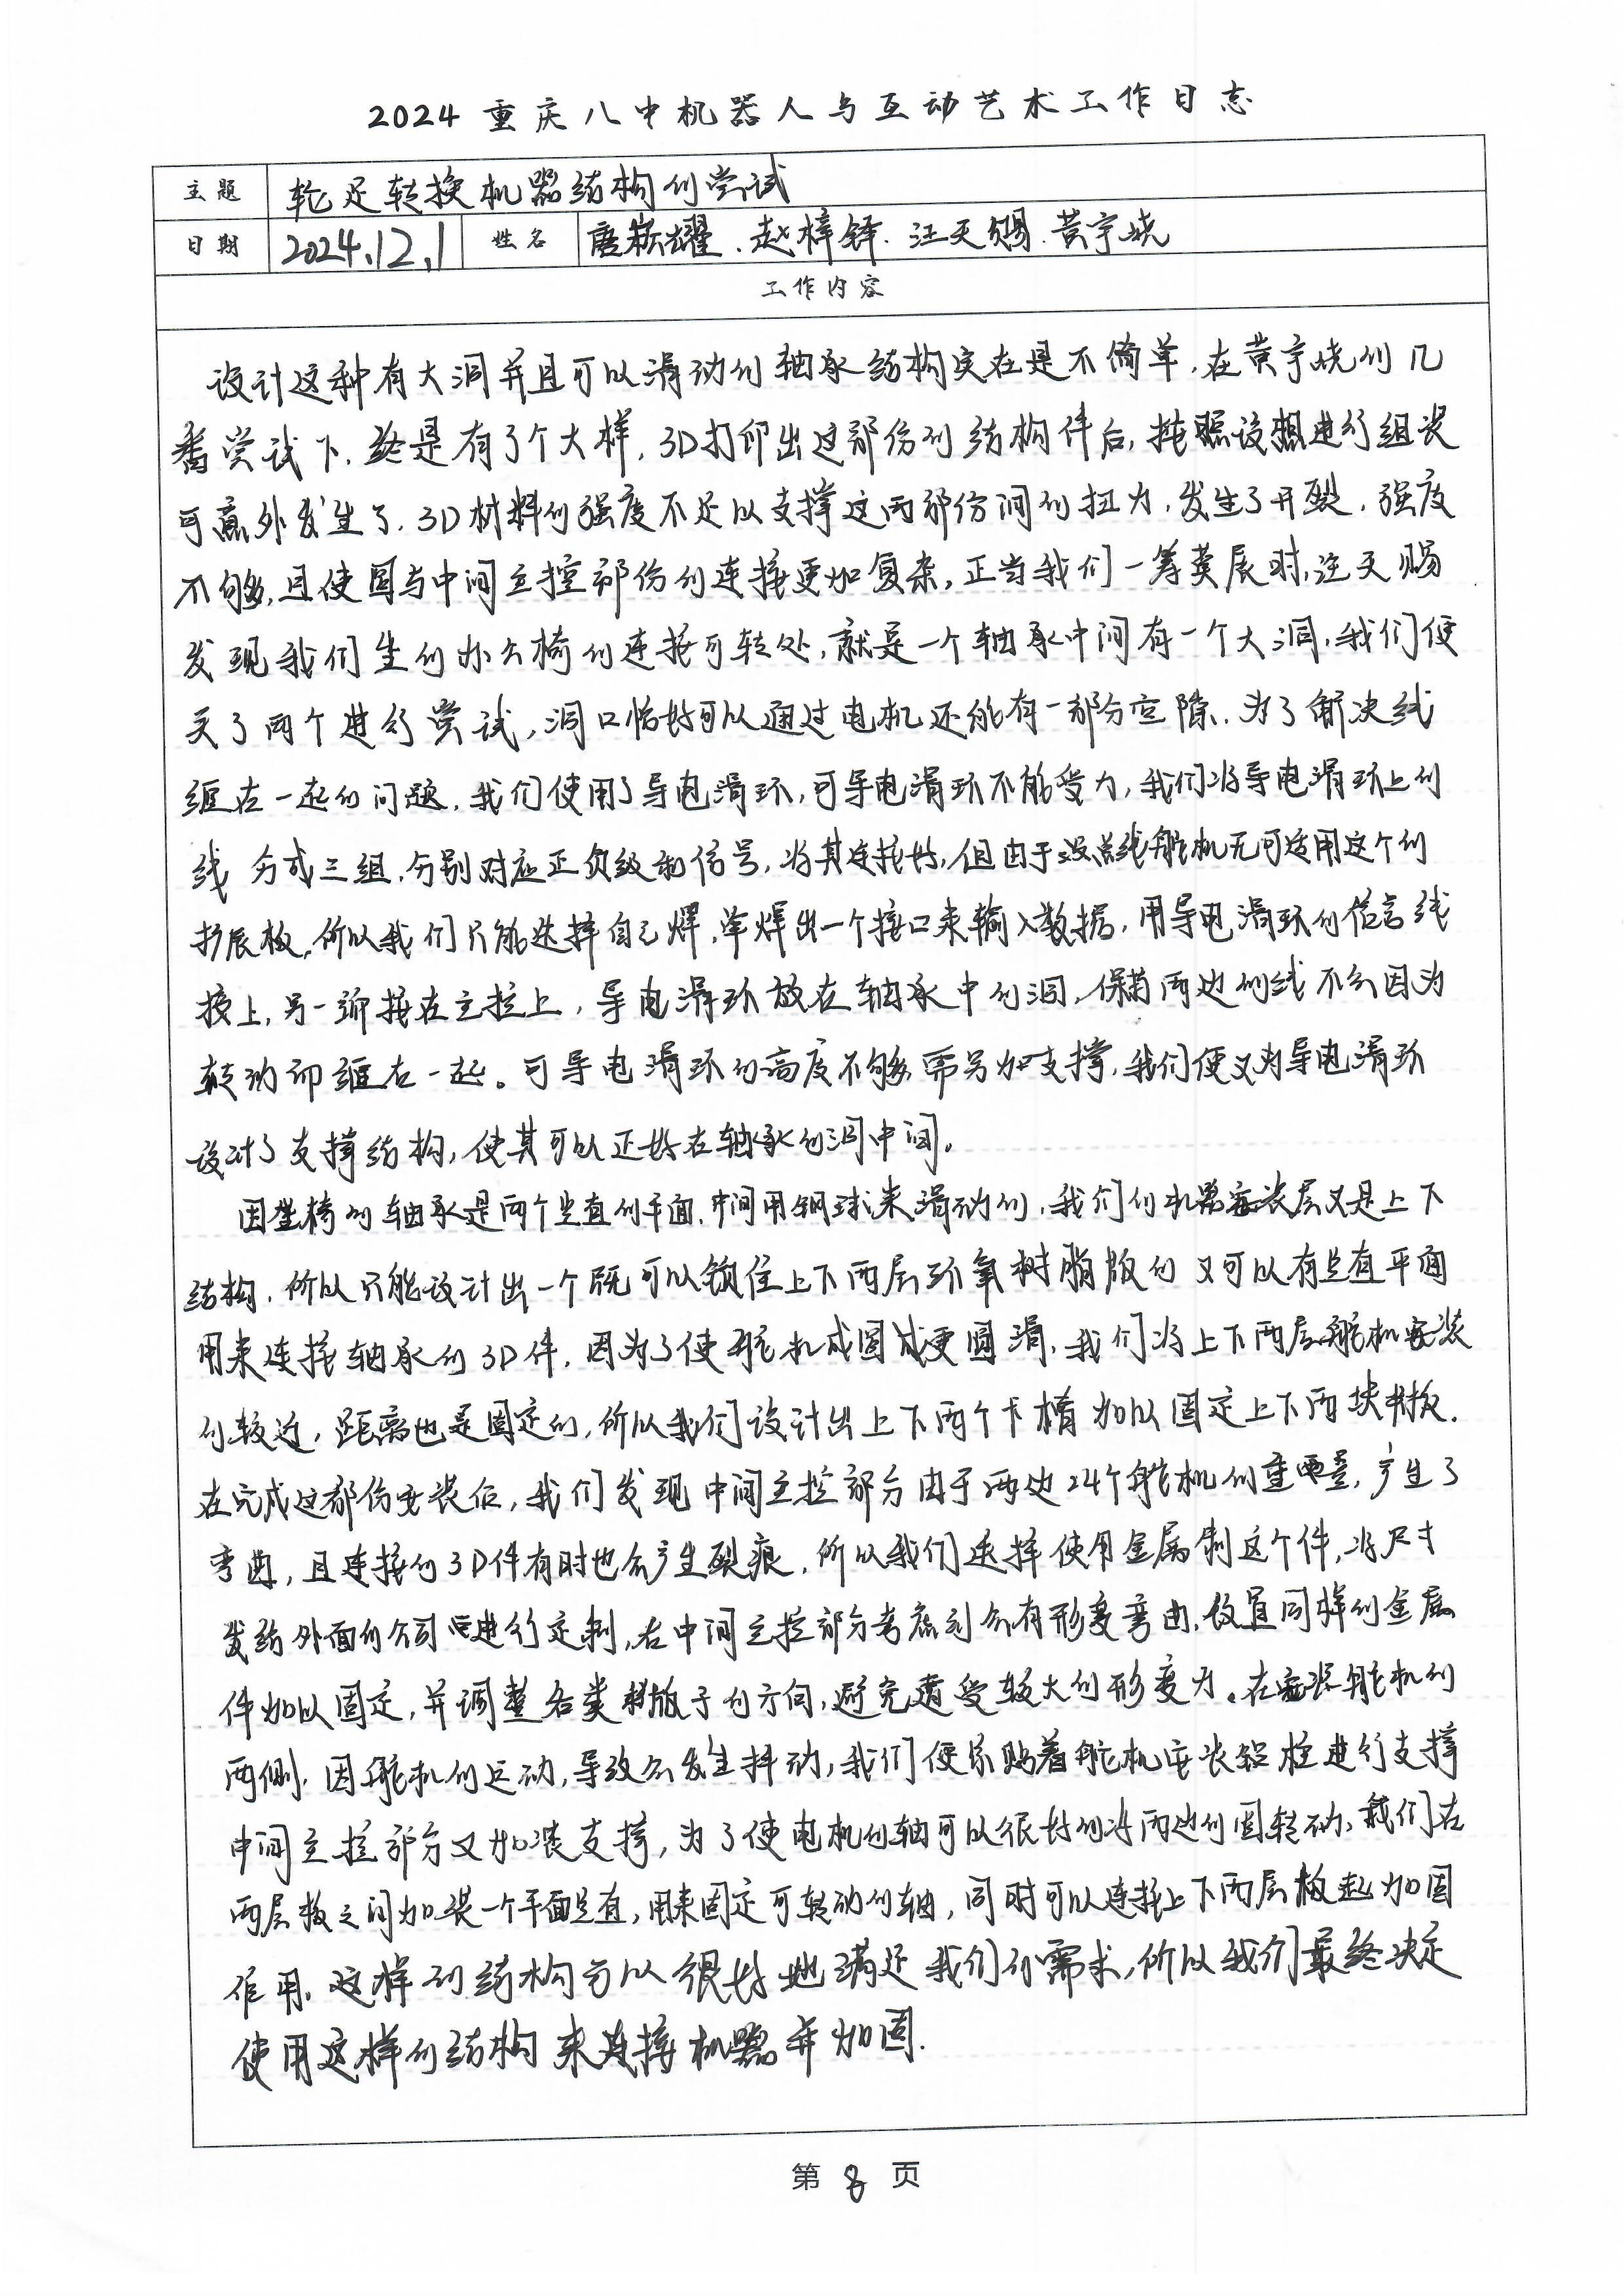 2024重庆八中机器人与互动艺术工作日志
主题 轮足转换机器结构的尝试
日期 2024.12.1 姓名 唐耘耀.赵梓铎.汪天赐.黄宇晓
工作内容
设计这种有大洞并且可以滑动的轴承结构实在是不简单,在黄宇晓的几
番尝试下,终是有了个大样,3D打印出这部份的结构件后,按照设想进行组装
可意外发生了,3D材料的强度不足以支撑这两部份间的扭力,发生了开裂,强度
不够,且使圆与中间主控部份的连接更加复杂,正当我们一筹莫展时,汪天赐
发现我们坐的办公椅的连接可转处,就是一个轴承中间有一个大洞,我们便
买了两个进行尝试,洞口恰好可以通过电机还能有一部分空隙.为了解决线
缠在一起的问题,我们使用了导电滑环,可导电滑环不能受力,我们将导电滑环上的
线 分成三组,分别对应正负级和信号,将其连接好,但由于没总线舵机无可适用这个的
扩展板,所以我们只能选择自己焊,单焊出一个接口来输入数据,用导电滑环的信号线
接上,另一端接在主控上,导电滑环放在轴承中的洞,保两边的线不会因为
转动而缠在一起。可导电滑环的高度不够,需另加支撑,我们便又为导电滑环
设计了支撑结构,使其可以正好在轴承的洞中间。
因坐椅的轴承是两个竖直的平面,中间用钢球来滑动的,我们的机器安装层又是上下
结构,所以只能设计出一个既可以锁住上下两层环氧树脂版的 又可以有竖直平面
用来连接轴承的3D件,因为了使舵机成圆成更圆滑,我们将上下两层舵机安装
的较近,距离也是固定的,所以我们设计出上下两个卡槽加以固定上下两块板.
在完成这部份安装后,我们发现中间主控部分由于两边24个舵机的重量,产生了
弯曲,且连接的3D件有时也会产生裂痕,所以我们选择使用金属制这个件,将尺寸
发给外面的公司进行定制,在中间主控部分考虑到会有形变弯曲,设置同样的金属
件加以固定,并调整各类版子的方向,避免遭受较大的形变力。在安装舵机的
两侧,因舵机的运动,导致会发生抖动,我们便紧贴着舵机安装铝柱进行支撑
中间主控部分又加装支撑,为了使电机的轴可以很好的将两边的圆转动,我们在
两层板之间加装一个平面竖直,用来固定可转动的轴,同时可以连接上下两层板起加固
作用,这样的结构可以很好地满足我们的需求,所以我们最终决定
使用这样的结构来连接机器并加固.
第8页